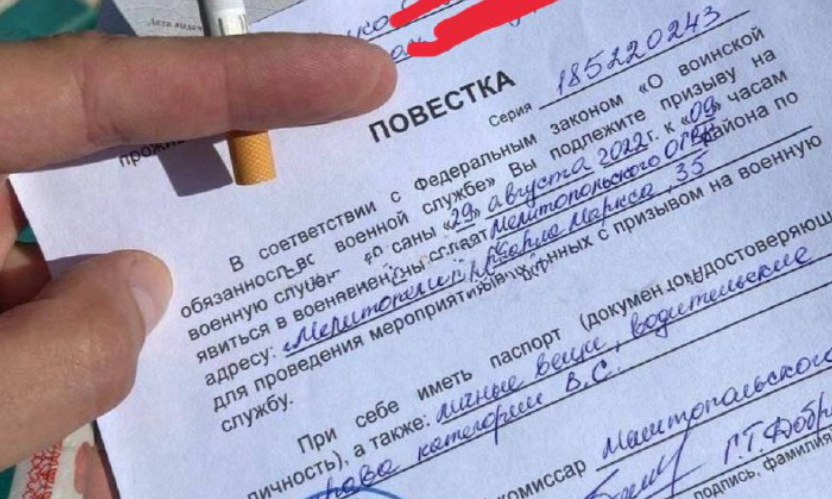 Дата выдачи
ПОВЕСТКА
Серия 185220243
В соответствии с Федеральным законом «О воинской
военной службе» Вы подлежите призыву на
военную «29» августа 2022 г. к «09» часам
явиться в Мелитопольского района по
адресу: Карла Маркса, 35
для проведения мероприятий с призывом на военную
службу.
При себе иметь паспорт удостоверяющ
личность), а также: личные вещи, водительские
права категории В.С.
комиссар Мелитопольского
Г.Т.
подпись, фамилия